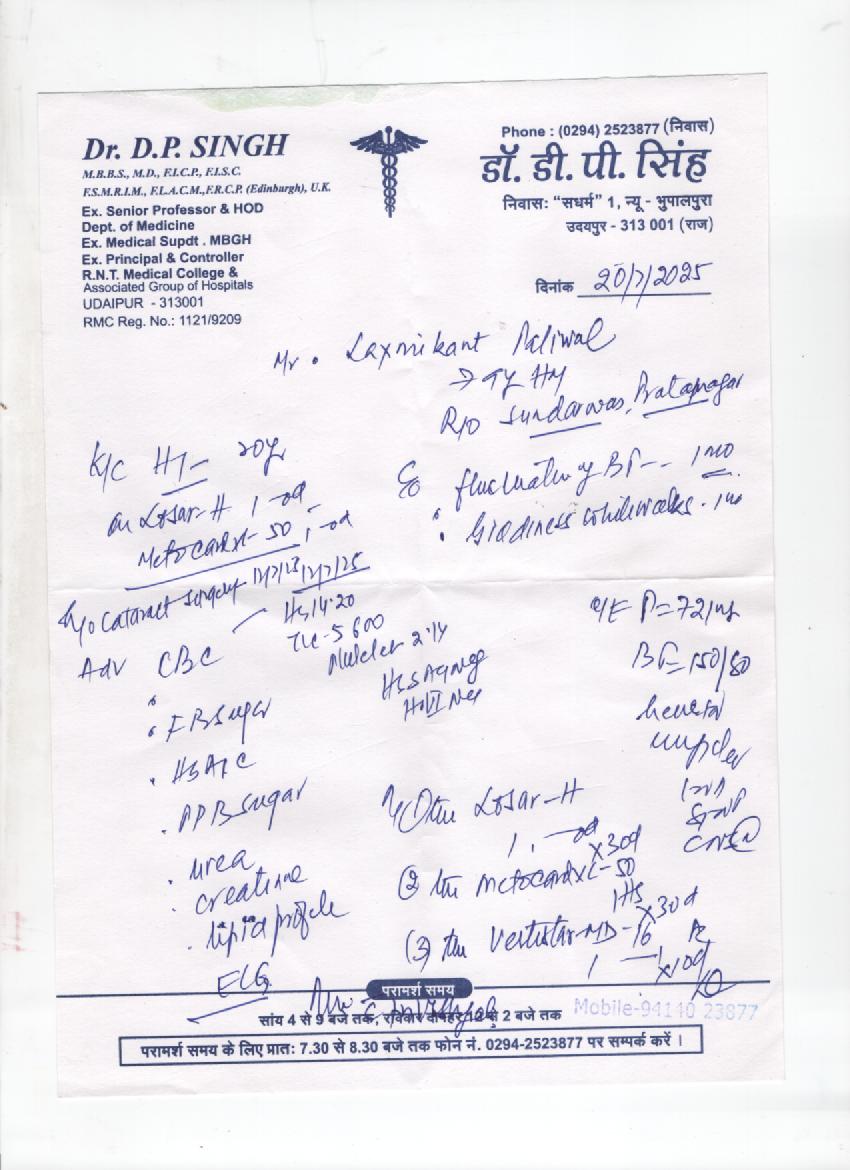 Dr. D.P. SINGH
M.B.B.S., M.D., F.I.C.P., F.I.S.C.
F.S.M.R.I.M., F.I.A.C.M., F.R.C.P. (Edinburgh), U.K.
Ex. Senior Professor & HOD
Dept. of Medicine
Ex. Medical Supdt . MBGH
Ex. Principal & Controller
R.N.T. Medical College &
Associated Group of Hospitals
UDAIPUR - 313001
RMC Reg. No.: 1121/9209
Phone : (0294) 2523877 (निवास)
डॉ. डी. पी. सिंह
निवास: “सधर्म” 1, न्यू - भुपालपुरा
उदयपुर - 313 001 (राज)
दिनांक 20/7/2025
Mr. Laxmikant Paliwal
R/o Sundarwas, Pratapnagar
K/C HT - 20y
on Losar-H 1 - od
Metocard XL-50 1 - od
H/o Cataract surgery 12/7/23
C/o fluctuation of BP -- 1 mo
Giddiness while walks . 1 mo
12/7/25
Hb 14.20
TLC - 5600
HBsAg Neg
HIV Neg
Adv CBC
FB sugar
HbA1C
PPB sugar
urea
creatinine
lipid profile
ECG
O/E P = 72/m
BP = 150/80
(1) tab Losar-H
1 - od x 30d
(2) tab Metocard XL-50
1 HS x 30d
(3) tab Vertistar-MD-16
1 - 1 x 10d
परामर्श समय
सांय 4 से 9 बजे तक, रविवार दोपहर 12 से 2 बजे तक
Mobile-94140 23877
परामर्श समय के लिए प्रात: 7.30 से 8.30 बजे तक फोन नं. 0294-2523877 पर सम्पर्क करें ।